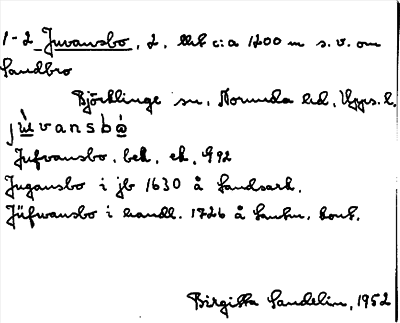 1-2 Juvansbo, 2. bbt c:a 1200 m s.v. om
Sandbro
Björklinge sn, Norunda hd, Upps. l.
júvansbó
Jufvansbo, bek, ek, 992
Jugansbo i jb 1630 å Landsark.
Jüfwansbo i handl. 1726 å Lantm. kont.
Birgitta Sandelin, 1952